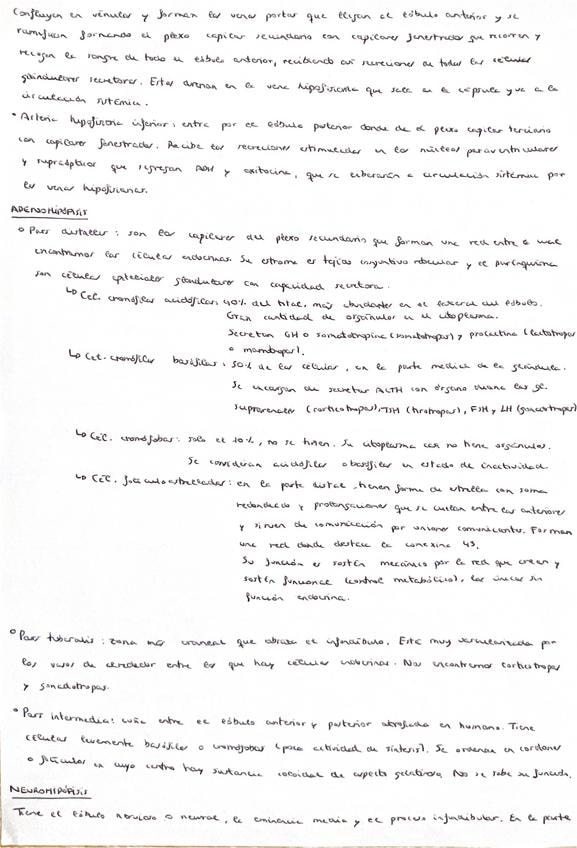 Confluyen en vénulas y forman las venas portas que llegan al lóbulo anterior y se
ramifican formando el plexo capilar secundario con capilares fenestrados que recorren y
recogen la sangre de todo el lóbulo anterior, recibiendo así secreciones de todas las células
glandulares secretoras. Estas drenan en la vena hipofisiaria que sale de la cápsula y va a la
circulación sistémica.
• Arteria hipofisiaria inferior: entra por el lóbulo posterior donde da el plexo capilar terciario
con capilares fenestrados. Recibe las secreciones estimuladas en los núcleos paraventriculares
y supraópticos que segregan ADH y oxitocina, que se liberarán a circulación sistémica por
las venas hipofisiarias.
ADENOHIPÓFISIS
• Pars distalis: son los capilares del plexo secundario que forman una red entre la cual
encontramos las células endocrinas. Su estroma es tejido conjuntivo reticular y el parénquima
son células epiteliales glandulares con capacidad secretora.
↳ Cél. cromófilas acidófilas: 40% del total, más abundantes en el lateral del lóbulo.
Gran cantidad de orgánulos en el citoplasma.
Secretan GH o somatotropina (somatotropas) y prolactina (lactotropas
o mamotropas).
↳ Cél. cromófilas basófilas: 50% de las células, en la parte medial de la glándula.
Se encargan de secretar ACTH con órgano diana las gl.
suprarrenales (corticotropas), TSH (tirotropas), FSH y LH (gonadotropas)
↳ Cél. cromófobas: solo el 10%, no se tiñen. Su citoplasma casi no tiene orgánulos.
Se consideran acidófilas o basófilas en estado de inactividad
↳ Cél. foliculoestrelladas: en la parte distal, tienen forma de estrella con soma
redondeado y prolongaciones que se cuelan entre las anteriores
y sirven de comunicación por uniones comunicantes. Forman
una red donde destaca la conexina 43.
Su función es sostén mecánico por la red que crean y
sostén funcional (control metabólico), las únicas sin
función endocrina.
• Pars tuberalis: zona más craneal que abraza el infundíbulo. Está muy vascularizada por
los vasos de alrededor entre los que hay células endocrinas. Nos encontramos corticotropas
y gonadotropas.
• Pars intermedia: cuña entre el lóbulo anterior y posterior atrofiada en humano. Tiene
células levemente basófilas o cromófobas (poca actividad de síntesis). Se ordenan en cordones
o folículos en cuyo centro hay sustancia coloidal de aspecto gelatinoso. No se sabe su función.
NEUROHIPÓFISIS
Tiene el lóbulo nervioso o neural, la eminencia media y el proceso infundibular. En la parte